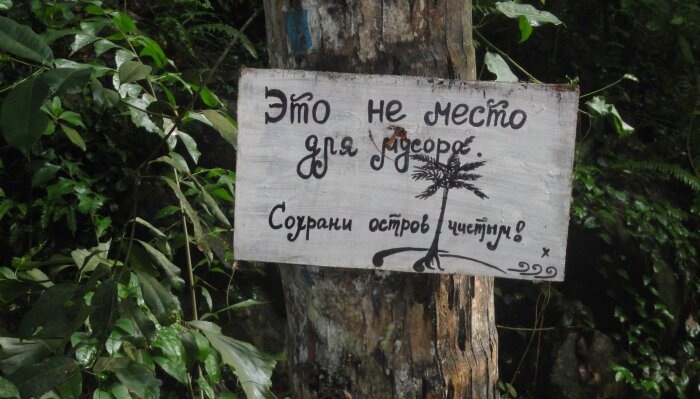 Это не место
для мусора.
Сохрани остров чистым!